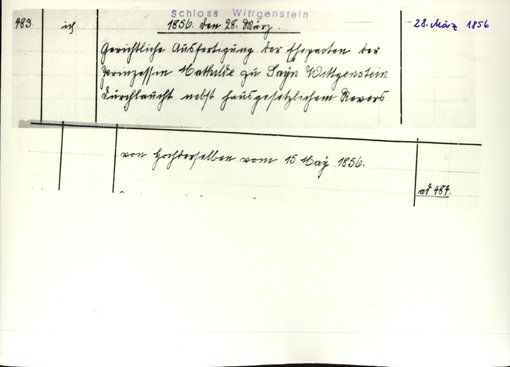 Schloss Wittgenstein
483. 1856. den 28. März. 28. März 1856
Gerichtliche Ausfertigung der Ehepakten der
Prinzessin Mathilde zu Sayn Wittgenstein
Durchlaucht nebst hausgesetzlichem Revers
von Hochderselben vom 15 May 1856.
ad 484.